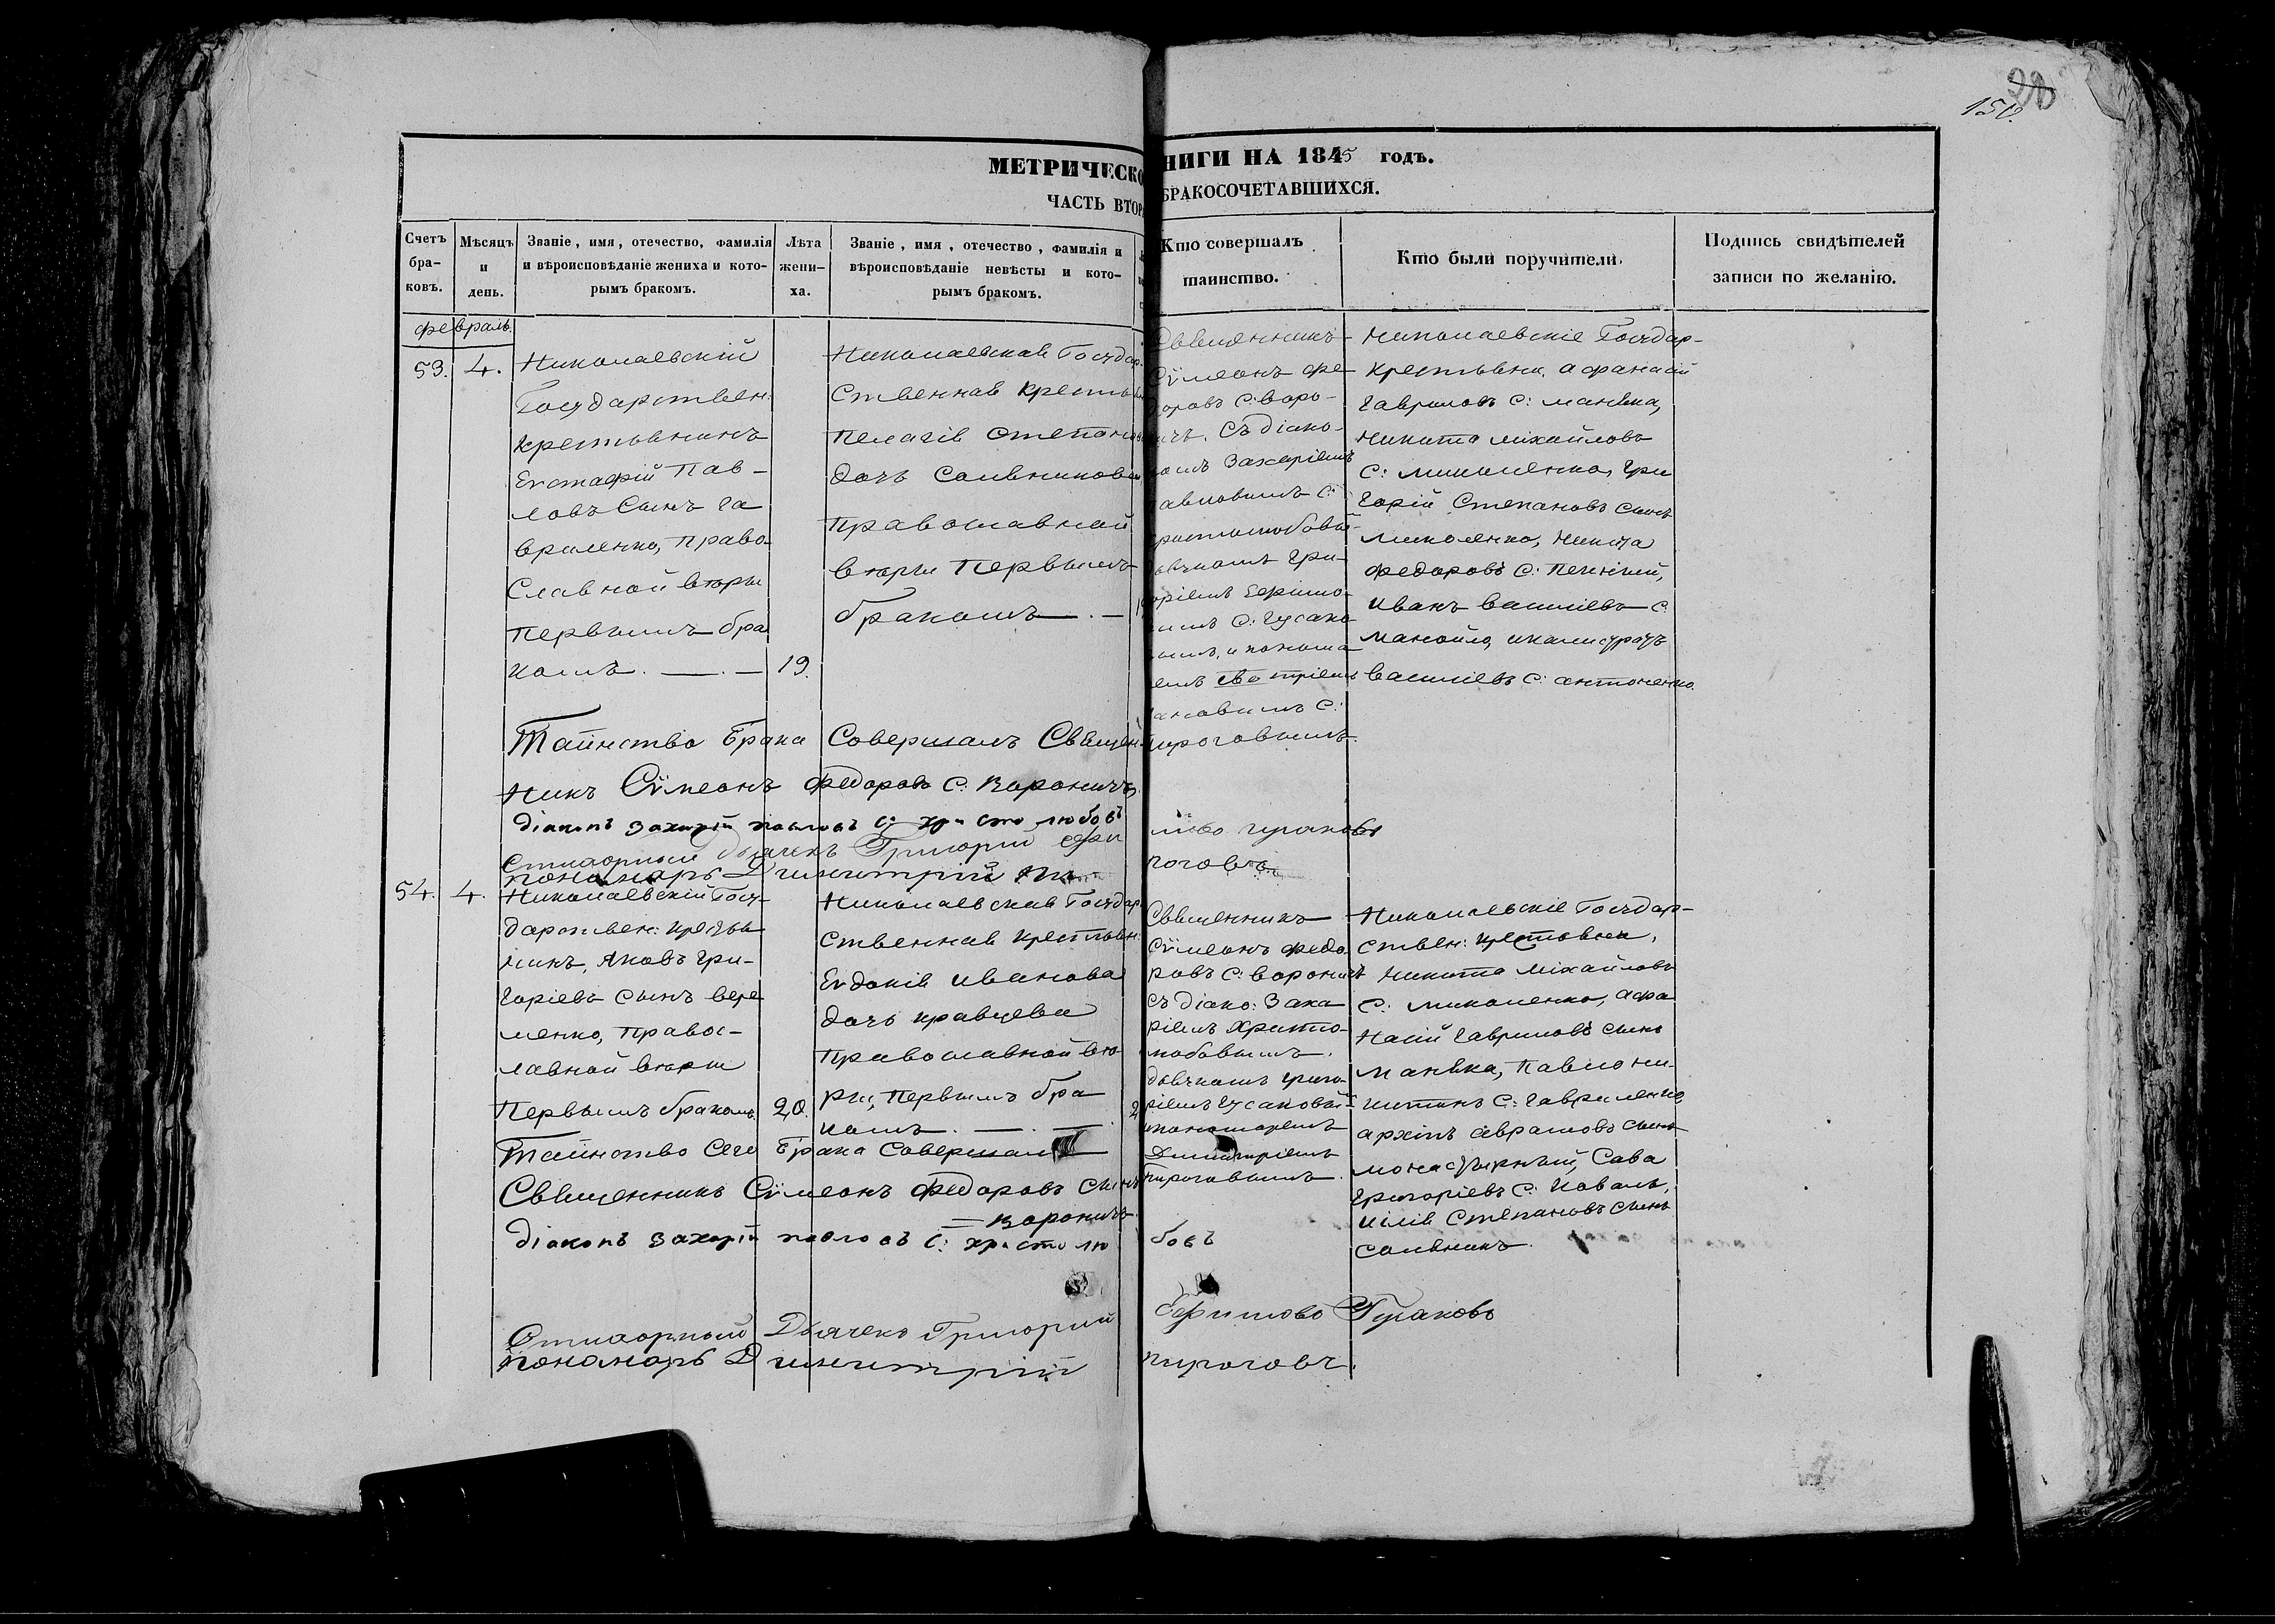 28
150.
МЕТРИЧЕСКО НИГИ НА 1845 годъ.
ЧАСТЬ ВТОР БРАКОСОЧЕТАВШИХСЯ.
Счетъ бра- ковъ.
Мѣсяцъ и день.
Званіе, имя, отечество, фамилія
и вѣроисповѣданіе жениха и кото-
рымъ бракомъ.
Лѣта жени- ха.
Званіе, имя, отечество, фамилія и
вѣроисповѣданіе невѣсты и кото-
рымъ бракомъ.
Кто совершалъ
таинство.
Кто были поручители.
Подпись свидѣтелей
записи по желанію.
февраль.
53. 4.
Николаевскій
Государствен:
крестьянинъ
Евстафій Пав-
ловъ Сынъ Га
вриленко, право
Славной вѣры
Первымъ бра
комъ. — . —
19.
Николаевская Государ
Ственная крестья
Пелагія Степано
дочь Сольникова
Православной
вѣры Первымъ
бракомъ . —
Священникъ
Сѵмеонъ Фе
доровъ С: Воро-
ичъ. Съ діако-
номъ Захаріемъ
авловымъ С:
ристолюбовы-
ьячкомъ Гри-
оріемъ Ефимо-
ымъ С: Гусако
ымъ, и понома
емъ
ановымъ С:
ироговымъ.
Николаевскіе Государ-
крестьяни, Афанасій
Гавриловъ С: Манька,
Никита Михайловъ
С: Миколенко, Гри
горій Степановъ сынъ
Миколенко, Никита
Федоровъ С:
Иванъ Василіевъ С
Манойло, и Калистратъ
Василіевъ С: Антоненко.
Таинство Брака Совершалъ Священ
никъ Сѵмеонъ Федоровъ С: Вороничъ,
діаконъ Захарій павловъ С: христолюбовъ
Стихарный Дьячекъ Григорій Ефи мово Гусаковъ
пономарь Димитрій Пи роговъ
54. 4.
Николаевскій Госу-
дарствен: крестья
нинъ, Яковъ Гри-
горіевъ Сынъ Вере
менко, Правос-
лавной вѣры
Первымъ бракомъ.
20.
Николаевская Государ
ственная крестьян:
Евдокія Иванова
дочь Кравцева
Православной вѣ
ры, Первымъ бра
комъ . — . —
Священникъ
Сѵмеонъ Федо
ровъ С: Вороничъ
съ діако: Заха
ріемъ Христо-
любовымъ.
дьячкомъ Григо-
ріемъ Гусаковы
пономаремъ
Димитріемъ
Пироговымъ.
Николаевскіе Государ-
ствен: крестьяни,
Никита Михайловъ
С: Миколенко, Афа
насій Гавриловъ сынъ
Манька, Павло Ни-
китинъ С: Гавриленко,
Архипъ Аврамовъ сынъ
Монастырный, Сава
Григоріевъ С: Коваль,
Илія Степановъ сынъ
Сольникъ.
Таинство Сего Брака Совершалъ
Священникъ Сѵмеонъ Федоровъ Сынъ
— Вороничъ
діаконъ Захарій павловъ С: христолю бовъ
Стихарный Дьячекъ Григорій Ефимово Гусаковъ
пономарь Димитрій пироговъ.